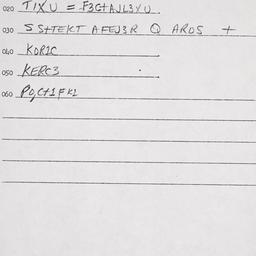 020 TIXU = F3G+AJL3YU
030 SS+TEKT AFEJ3R Q AROS +
040 KOR1C
050 KERC3
060 PO,C+1FK1